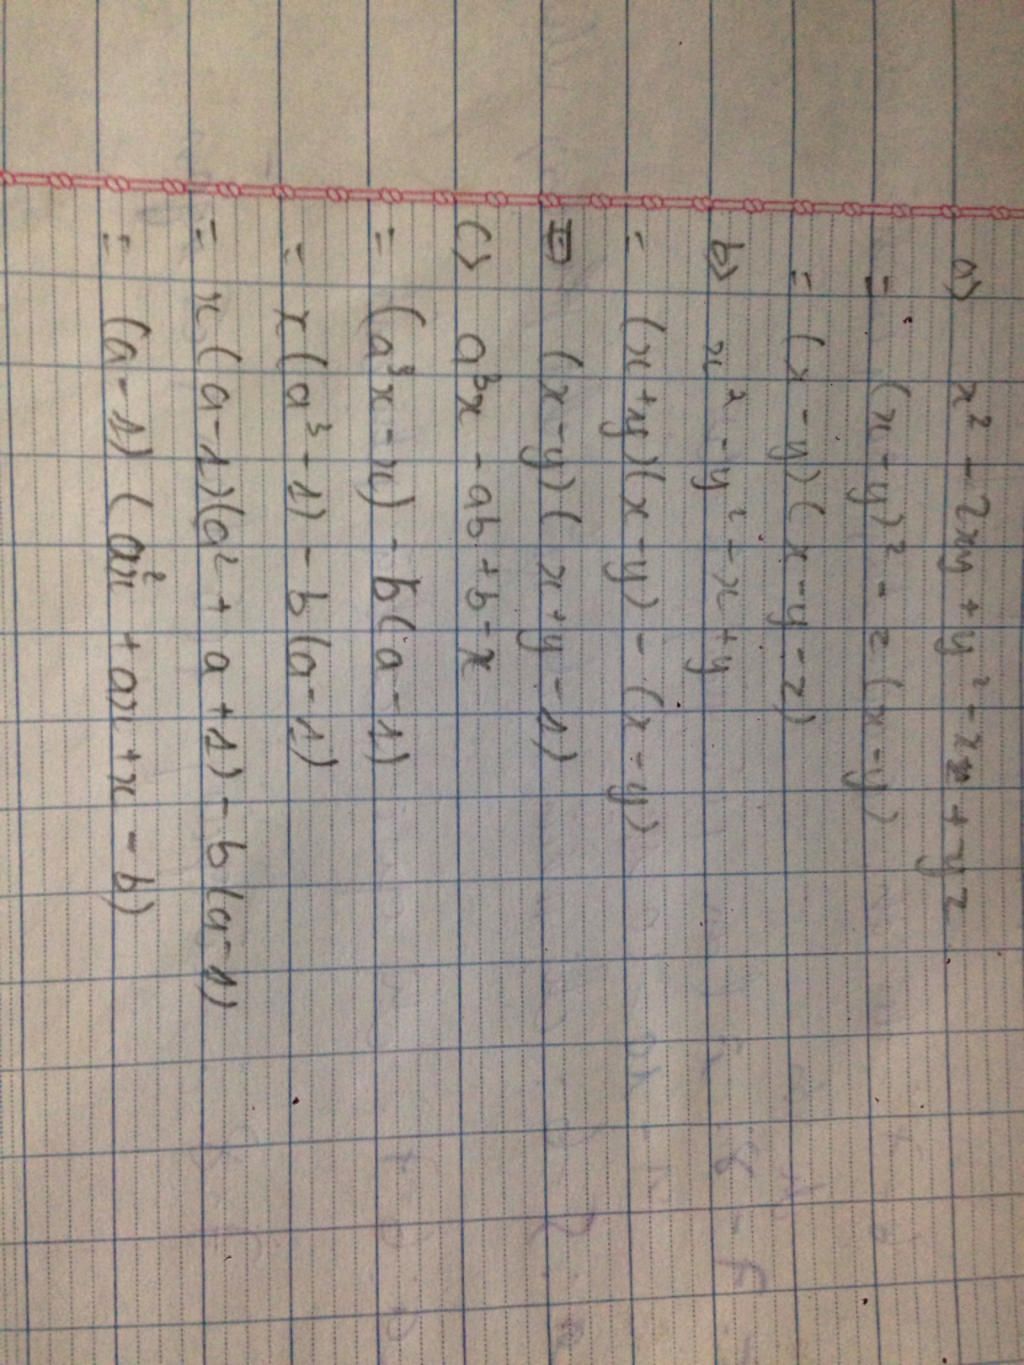 a) x² - 2xy + y² - xz + yz
= (x - y)² - z (x - y)
= (x - y) (x - y - z)
b) x² - y² - x + y
= (x + y)(x - y) - (x - y)
(x - y) (x + y - 1)
c) a³x - ab + b - x
= (a³x - x) - b (a - 1)
= x (a³ - 1) - b (a - 1)
= x (a - 1)(a² + a + 1) - b (a - 1)
= (a - 1) (a²x + ax + x - b)